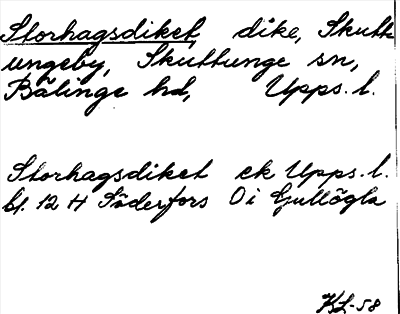 Storhagsdiket, dike, Skutt
ungeby, Skuttunge sn,
Bälinge hd, Upps. l.
Storhagsdiket ek Upps. l.
bl. 12 H Söderfors O i Gullögla
KL-58